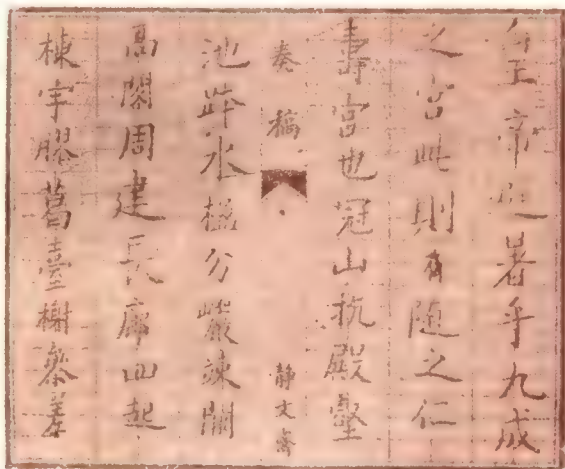 皇帝避暑乎九成
之宮此則有随之仁
壽宮也冠山抗殿壑
奏稿
静文齋
池跨水楹分巖竦闕
高閣周建長廊四起
棟宇膠葛臺榭叅差